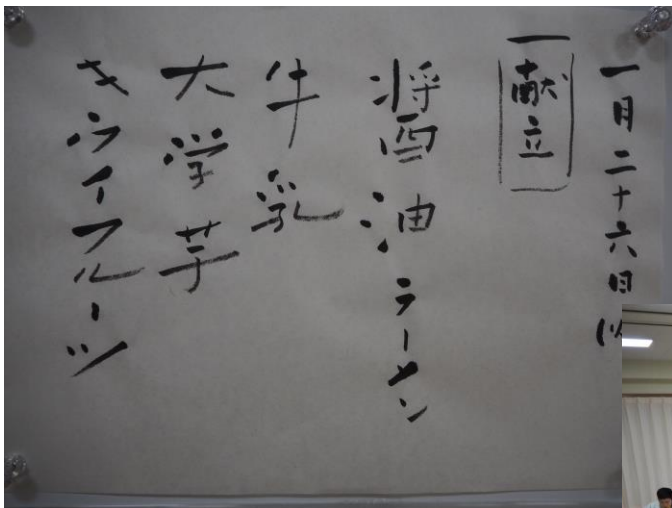 一月二十六日
献立
醤油ラーメン
牛乳
大学芋
キウイフルーツ